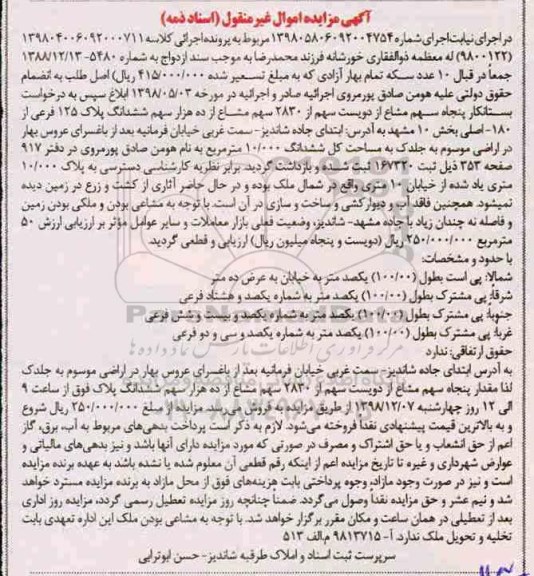 آگهی مزایده اموال غیرمنقول (اسناد ذمه)
در اجرای نیابت اجرای شماره ۱۳۹۸۰۵۸۰۶۰۹۲۰۰۴۷۵۴ مربوط به پرونده اجرائی کلاسه ۱۳۹۸۰۴۰۰۶۰۹۲۰۰۰۷۱۱
(۹۸۰۰۱۲۲) له معظمه ذوالفقاری خورشانه فرزند محمدرضا به موجب سند ازدواج به شماره ۵۴۸۰- ۱۳۸۸/۱۲/۱۳
جمعا در قبال ۱۰ عدد سکه تمام بهار آزادی که به مبلغ تسعیر شده ۴۱۵/۰۰۰/۰۰۰ ریال) اصل طلب به انضمام
حقوق دولتی علیه هومن صادق پورمروی اجرائیه صادر و اجرائیه در مورخه ۱۳۹۸/۰۵/۰۳ ابلاغ سپس به درخواست
بستانکار پنجاه سهم مشاع از دویست سهم از ۲۸۳۰ سهم مشاع از ده هزار سهم ششدانگ پلاک ۱۲۵ فرعی از
۱۸۰- اصلی بخش ۱۰ مشهد به آدرس: ابتدای جاده شاندیز- سمت غربی خیابان فرمانیه بعد از باغسرای عروس بهار
در اراضی موسوم به جلدک به مساحت کل ششدانگ ۱۰/۰۰۰ مترمربع به نام هومن صادق پورمروی در دفتر ۹۱۷
صفحه ۳۵۳ ذیل ثبت ۱۶۷۳۲۰ ثبت شده و بازداشت گردید. برابر نظریه کارشناسی دسترسی به پلاک ۱۰/۰۰۰
متری یاد شده از خیابان ۱۰ متری واقع در شمال ملک بوده و در حال حاضر آثاری از کشت و زرع در زمین دیده
نمیشود. همچنین فاقد آب و دیوارکشی و ساخت و سازی در آن است. با توجه به مشاعی بودن و ملکی بودن زمین
و فاصله نه چندان زیاد با جاده مشهد- شاندیز، وضعیت فعلی بازار معاملات و سایر عوامل مؤثر بر ارزیابی ارزش ۵۰
مترمربع ۲۵۰/۰۰۰/۰۰۰ ریال (دویست و پنجاه میلیون ریال) ارزیابی و قطعی گردید.
با حدود و مشخصات:
شمالا: پی است بطول (۱۰۰/۰۰) یکصد متر به خیابان به عرض ده متر
شرقا: پی مشترک بطول (۱۰۰/۰۰) یکصد متر به شماره یکصد و هشتاد فرعی
جنوبا: پی مشترک بطول (۱۰۰/۰۰) یکصد متر به شماره یکصد و بیست و شش فرعی
غربا: پی مشترک بطول (۱۰۰/۰۰) یکصد متر به شماره یکصد و سی و دو فرعی
حقوق ارتفاقی: ندارد
به آدرس ابتدای جاده شاندیز- سمت غربی خیابان فرمانیه بعد از باغسرای عروس بهار در اراضی موسوم به جلدک
لذا مقدار پنجاه سهم مشاع از دویست سهم از ۲۸۳۰ سهم مشاع از ده هزار سهم ششدانگ پلاک فوق از ساعت ۹
الی ۱۲ روز چهارشنبه ۱۳۹۸/۱۲/۰۷ از طریق مزایده به فروش می‌رسد. مزایده از مبلغ ۲۵۰/۰۰۰/۰۰۰ ریال شروع
و به بالاترین قیمت پیشنهادی نقدا فروخته می‌شود. لازم به ذکر است پرداخت بدهی‌های مربوط به آب، برق، گاز
اعم از حق انشعاب و یا حق اشتراک و مصرف در صورتی که مورد مزایده دارای آنها باشد و نیز بدهی‌های مالیاتی و
عوارض شهرداری و غیره تا تاریخ مزایده اعم از اینکه رقم قطعی آن معلوم شده یا نشده باشد به عهده برنده مزایده
است و نیز در صورت وجود مازاد، وجوه پرداختی بابت هزینه‌های فوق از محل مازاد به برنده مزایده مسترد خواهد
شد و نیم عشر و حق مزایده نقدا وصول می‌گردد. ضمنا چنانچه روز مزایده تعطیل رسمی گردد، مزایده روز اداری
بعد از تعطیلی در همان ساعت و مکان مقرر برگزار خواهد شد. با توجه به مشاعی بودن ملک این اداره تعهدی بابت
تخلیه و تحویل ملک ندارد. آ- ۹۸۱۳۷۱۵ م.الف ۵۱۳
سرپرست ثبت اسناد و املاک طرقبه شاندیز- حسن ابوترابی